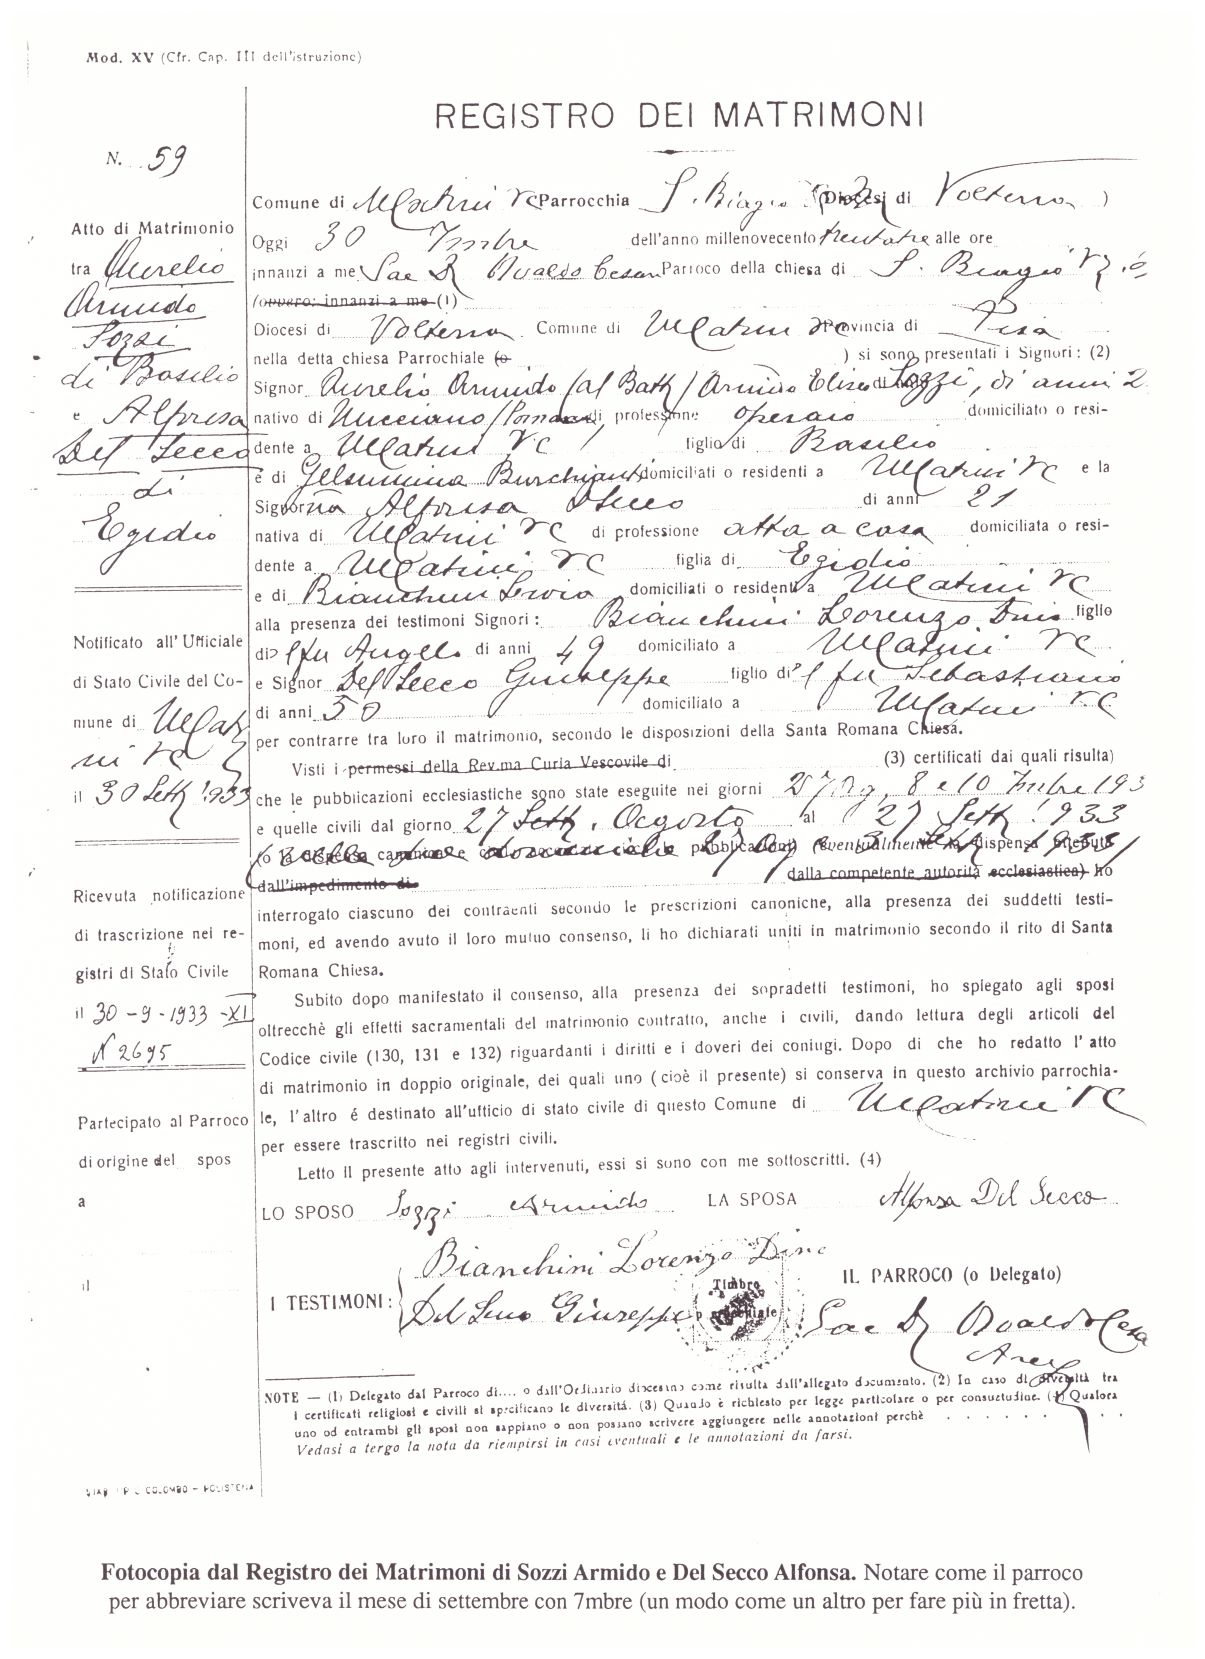 Mod. XV (Cfr. Cap. III dell'istruzione)
REGISTRO DEI MATRIMONI
N. 59
Atto di Matrimonio
tra Aurelio
Armido
Sozzi
di Basilio
e Alfonsa
Del Secco
di
Egidio
Notificato all' Ufficiale
di Stato Civile del Co-
mune di
il 30 Sett 1933
Ricevuta notificazione
di trascrizione nei re-
gistri di Stato Civile
il 30-9-1933-XI
N 2695
Partecipato al Parroco
di origine del spos
a
il
Comune di M/Catini VC Parrocchia S. Biagio Diocesi di Volterra )
Oggi 30 7mbre dell'anno millenovecento trentatre alle ore
innanzi a me Sac D Ovaldo Cesari Parroco della chiesa di S. Biagio
(ovvero: innanzi a me (1)
Diocesi di Volterra Comune di M/Catini VC Provincia di Pisa
nella detta chiesa Parrochiale (o ) si sono presentati i Signori: (2)
Signor Aurelio Armido (al Batt/ Armido Eliseo Sozzi, di anni 2
nativo di di professione operaio domiciliato o resi-
dente a M/Catini VC figlio di Basilio
e di Gelsumina Burchianti domiciliati o residenti a M/Catini VC e la
Signorina Alfonsa D Secco di anni 21
nativa di M/Catini VC di professione atta a casa domiciliata o resi-
dente a M/Catini VC figlia di Egidio
e di Bianchini domiciliati o residenti a M/Catini VC
alla presenza dei testimoni Signori: Bianchini Lorenzo Dino figlio
di fu Angelo di anni 49 domiciliato a M/Catini VC
e Signor Del Secco Giuseppe figlio di fu Sebastiano
di anni 50 domiciliato a M/Catini VC
per contrarre tra loro il matrimonio, secondo le disposizioni della Santa Romana Chiesa.
Visti i permessi della Rev.ma Curia Vescovile di (3) certificati dai quali risulta)
che le pubblicazioni ecclesiastiche sono state eseguite nei giorni 27 Ag, 8 e 10 7mbre 193
e quelle civili dal giorno 27 Sett. Ogosto al 27 Sett 1933
pubblicazioni) (eventualmente la dispensa ottenuta
dall'impedimento di dalla competente autorità ecclesiastica) ho
interrogato ciascuno dei contraenti secondo le prescrizioni canoniche, alla presenza dei suddetti testi-
moni, ed avendo avuto il loro mutuo consenso, li ho dichiarati uniti in matrimonio secondo il rito di Santa
Romana Chiesa.
Subito dopo manifestato il consenso, alla presenza dei sopradetti testimoni, ho spiegato agli sposi
oltrecchè gli effetti sacramentali del matrimonio contratto, anche i civili, dando lettura degli articoli del
Codice civile (130, 131 e 132) riguardanti i diritti e i doveri dei coniugi. Dopo di che ho redatto l' atto
di matrimonio in doppio originale, dei quali uno (cioè il presente) si conserva in questo archivio parrochia-
le, l'altro é destinato all'ufficio di stato civile di questo Comune di M/Catini VC
per essere trascritto nei registri civili.
Letto il presente atto agli intervenuti, essi si sono con me sottoscritti. (4)
LO SPOSO Sozzi Armido LA SPOSA Alfonsa Del Secco
Bianchini Lorenzo Dino
IL PARROCO (o Delegato)
I TESTIMONI: Del Secco Giuseppe Timbro parrochiale Sac D Ovaldo Cesa
NOTE — (1) Delegato dal Parroco di.... o dall'Ordinario diocesano come risulta dall'allegato documento. (2) In caso di diversità tra
i certificati religiosi e civili si specificano le diversità. (3) Quando è richiesto per legge particolare o per consuetudine. (4) Qualora
uno od entrambi gli sposi non sappiano o non possano scrivere aggiungere nelle annotazioni perchè . . . . . . . .
Vedasi a tergo la nota da riempirsi in casi eventuali e le annotazioni da farsi.
COLOMBO - POLISTENA
Fotocopia dal Registro dei Matrimoni di Sozzi Armido e Del Secco Alfonsa. Notare come il parroco
per abbreviare scriveva il mese di settembre con 7mbre (un modo come un altro per fare più in fretta).